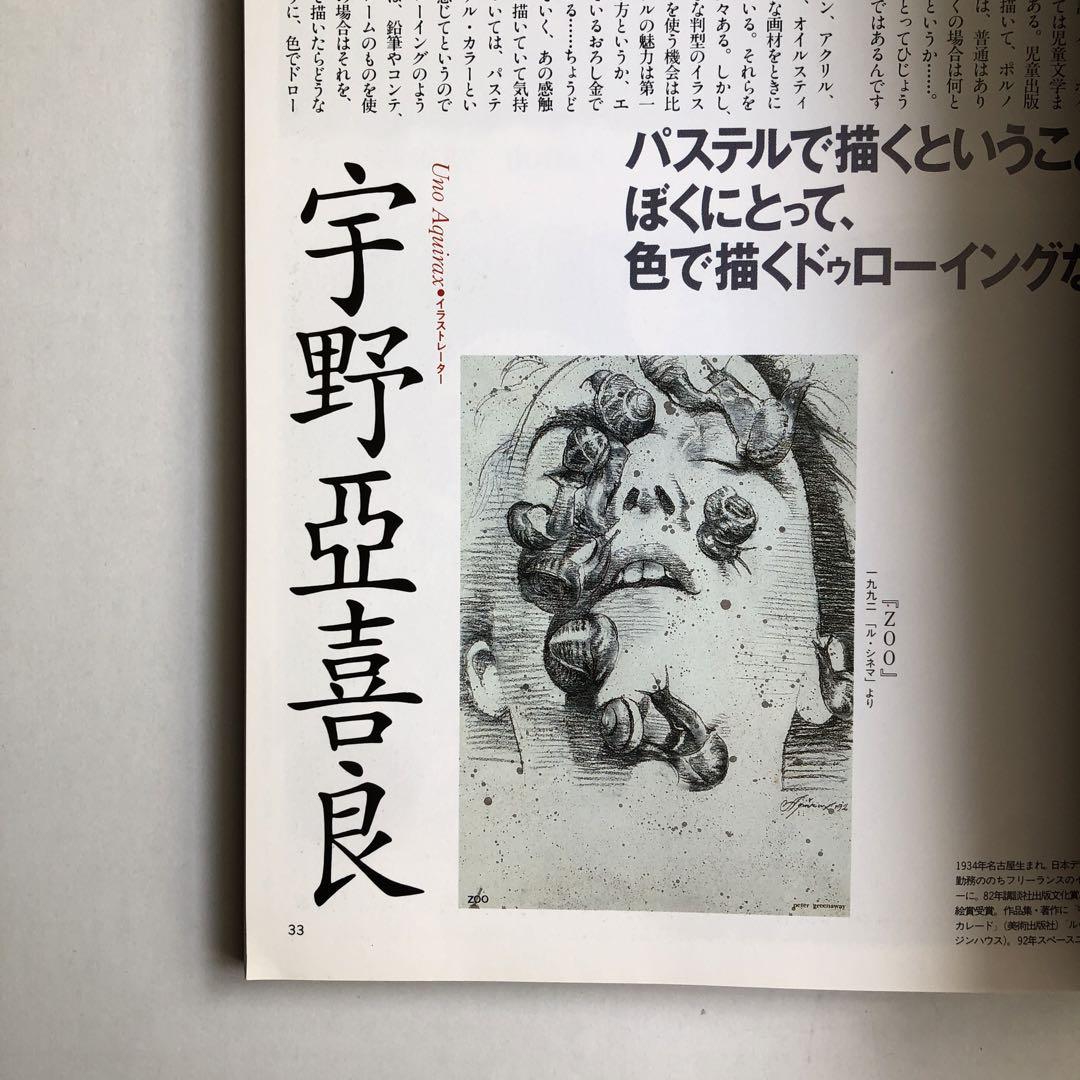 ては児童文学ま
ある。児童出版
描いて、ポルノ
は、普通はあり
くの場合は何と
というか……。
とってひじょう
ではあるんです
ン、アクリル、
、オイルスティ
な画材をときに
いる。それらを
々ある。しかし、
な判型のイラス
を使う機会は比
ルの魅力は第一
方というか、エ
いるおろし金で
る……ちょうど
いく、あの感触
描いていて気持
いては、パステ
ル・カラーとい
感じてというので
ーイングのよう
は、鉛筆やコンテ、
ームのものを使
の場合はそれを、
を描いたらどうな
に、色でドロー
パステルで描くということ
ぼくにとって、
色で描くドゥローイングな
Uno Aquirax●イラストレーター
宇野亞喜良
『ZOO』
一九九二「ル・シネマ」より
ZOO
peter greenaway
1934年名古屋生まれ。日本デ
勤務ののちフリーランスのイ
ーに。82年講談社出版文化賞
絵賞受賞。作品集・著作に
カレード」(美術出版社)「ル
ジンハウス)。92年スペースニ
33